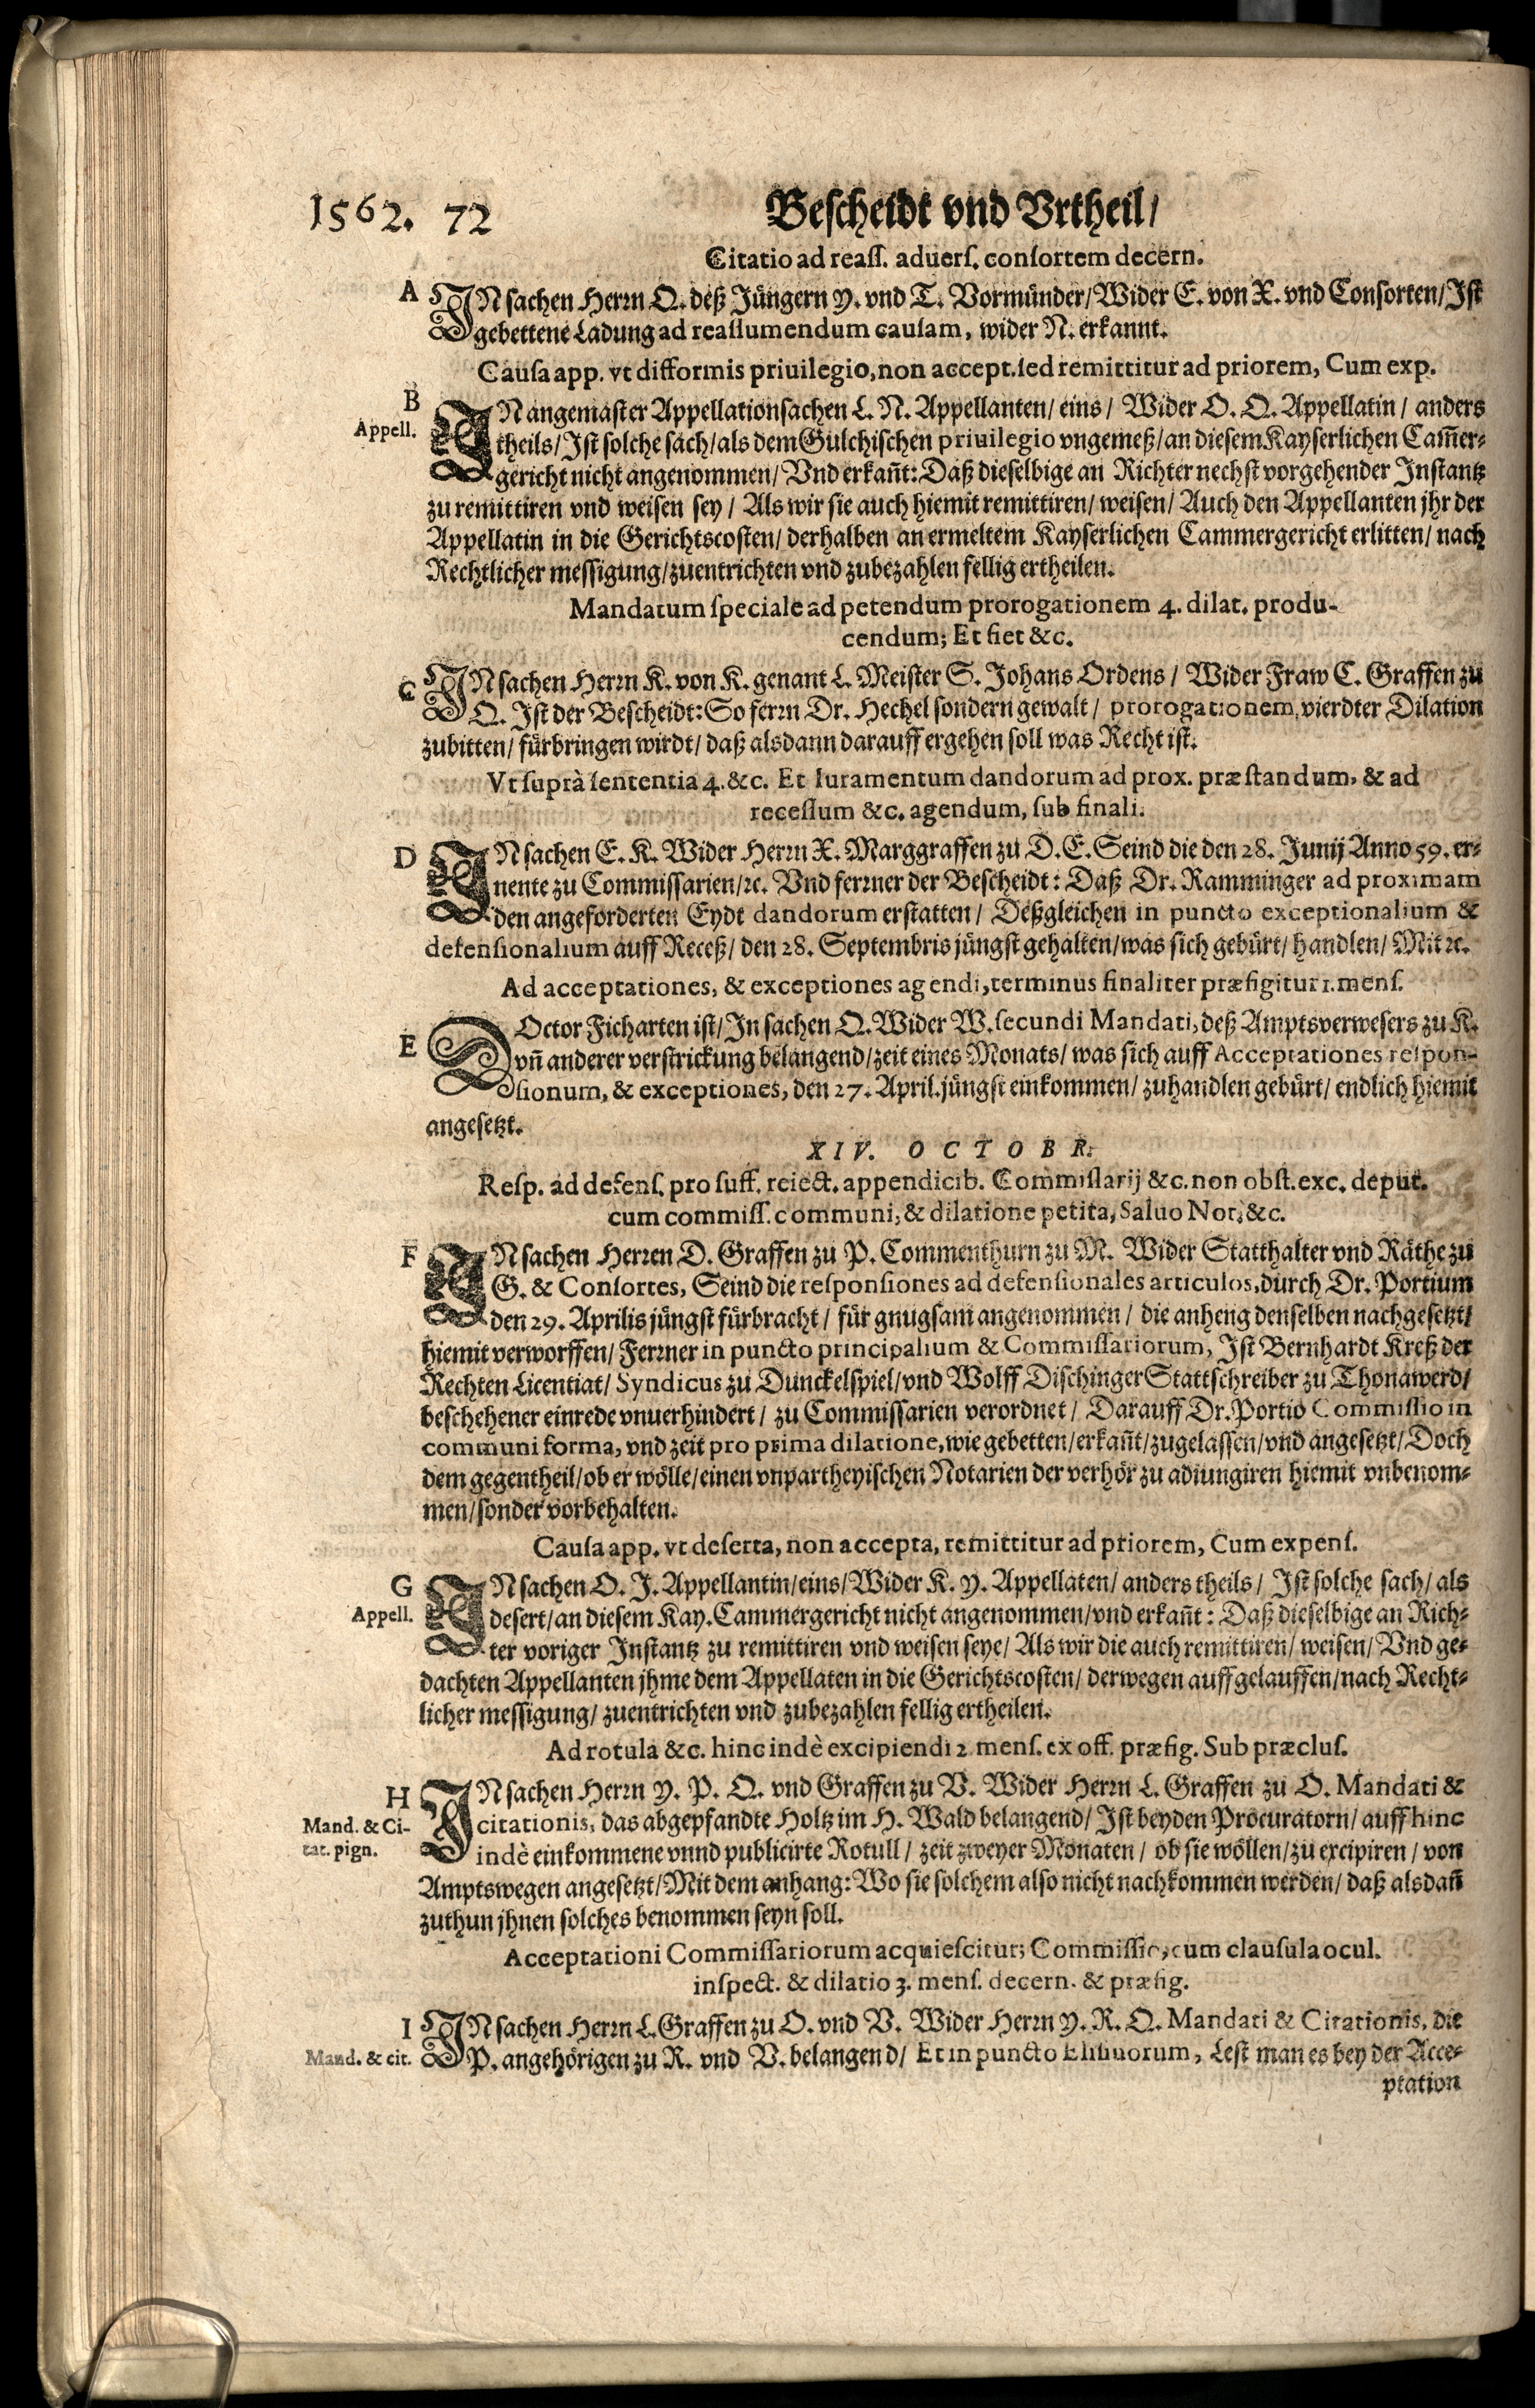 1562. 72 Bescheidt vnd Vrtheil/
Citatio ad reass. aduers. consortem decern.
A INsachen Herrn Q. deß Jüngern Y. vnd T. Vormünder/Wider E. von X. vnd Consorten/Ist
gebettene Ladung ad reassumendum causam, wider N. erkannt.
Causa app. vt difformis priuilegio, non accept. sed remittitur ad priorem, Cum exp.
B
Appell.
IN angemaster Appellationsachen L. N. Appellanten/ eins/ Wider O. O. Appellatin/ anders
theils/Ist solche sach/als dem Gülchischen priuilegio vngemeß/an diesem Kayserlichen Cam̃er-
gericht nicht angenommen/ Vnd erkañt: Daß dieselbige an Richter nechst vorgehender Instantz
zu remittiren vnd weisen sey/ Als wir sie auch hiemit remittiren/ weisen/ Auch den Appellanten jhr der
Appellatin in die Gerichtscosten/ derhalben an ermeltem Kayserlichen Cammergericht erlitten/ nach
Rechtlicher messigung/zuentrichten vnd zubezahlen fellig ertheilen.
Mandatum speciale ad petendum prorogationem 4. dilat. produ-
cendum; Et fiet &c.
C INsachen Herrn K. von K. genant L. Meister S. Johans Ordens/ Wider Fraw C. Graffen zu
Q. Ist der Bescheidt: So ferrn Dr. Hechel sondern gewalt/ prorogationem, vierdter Dilation
zubitten/ fürbringen wirdt/ daß alsdann darauff ergehen soll was Recht ist.
Vt suprà sententia 4. &c. Et Iuramentum dandorum ad prox. præstandum, & ad
recessum &c. agendum, sub finali.
D IN sachen E. K. Wider Herrn X. Marggraffen zu D. E. Seind die den 28. Junij Anno 59. er-
nente zu Commissarien/ꝛc. Vnd ferrner der Bescheidt: Daß Dr. Ramminger ad proximam
den angeforderten Eydt dandorum erstatten/ Deßgleichen in puncto exceptionalium &
defensionalium auff Receß/ den 28. Septembris jüngst gehalten/was sich gebürt/ handlen/ Mit ꝛc.
Ad acceptationes, & exceptiones agendi, terminus finaliter præfigitur 1. mens.
E DOctor Ficharten ist/ In sachen Q. Wider W. secundi Mandati, deß Amptsverwesers zu K.
vñ anderer verstrickung belangend/zeit eines Monats/ was sich auff Acceptationes respon-
sionum, & exceptiones, den 27. April. jüngst einkommen/ zuhandlen gebürt/ endlich hiemit
angesetzt.
XIV. OCTOBR.
Resp. ad defens. pro suff. reiect. appendicib. Commissarij &c. non obst. exc. deput.
cum commiss. communi, & dilatione petita, Saluo Not. &c.
F IN sachen Herren D. Graffen zu P. Commenthurn zu M. Wider Statthalter vnd Räthe zu
G. & Consortes, Seind die responsiones ad defensionales articulos, durch Dr. Portium
den 29. Aprilis jüngst fürbracht/ für gnugsam angenommen/ die anheng denselben nachgesetzt/
hiemit verworffen/ Ferrner in puncto principalium & Commissariorum, Ist Bernhardt Kreß der
Rechten Licentiat/ Syndicus zu Dunckelspiel/vnd Wolff Dischinger Stattschreiber zu Thonawerd/
beschehener einrede vnuerhindert/ zu Commissarien verordnet/ Darauff Dr. Portio Commissio in
communi forma, vnd zeit pro prima dilatione, wie gebetten/erkañt/zugelassen/vnd angesetzt/ Doch
dem gegentheil/ob er wölle/einen vnpartheyischen Notarien der verhör zu adiungiren hiemit vnbenom-
men/sonder vorbehalten.
Causa app. vt deserta, non accepta, remittitur ad priorem, Cum expens.
G
Appell.
IN sachen O. J. Appellantin/eins/Wider K. Y. Appellaten/ anders theils/ Ist solche sach/ als
desert/an diesem Kay. Cammergericht nicht angenommen/vnd erkañt: Daß dieselbige an Rich-
ter voriger Instantz zu remittiren vnd weisen seye/ Als wir die auch remittiren/ weisen/ Vnd ge-
dachten Appellanten jhme dem Appellaten in die Gerichtscosten/ derwegen auffgelauffen/nach Recht-
licher messigung/ zuentrichten vnd zubezahlen fellig ertheilen.
Ad rotula &c. hinc indè excipiendi 2. mens. ex off. præfig. Sub præclus.
H
Mand. & Ci-
tat. pign.
IN sachen Herrn Y. P. Q. vnd Graffen zu V. Wider Herrn L. Graffen zu O. Mandati &
citationis, das abgepfandte Holtz im H. Wald belangend/ Ist beyden Procuratorn/ auff hinc
indè einkommene vnnd publicirte Rotull/ zeit zweyer Monaten/ ob sie wöllen/zu excipiren/ von
Amptswegen angesetzt/Mit dem anhang: Wo sie solchem also nicht nachkommen werden/ daß alsdañ
zuthun jhnen solches benommen seyn soll.
Acceptationi Commissariorum acquiescitur; Commissio, cum clausula ocul.
inspect. & dilatio 3. mens. decern. & præfig.
I
Mand. & cit.
INsachen Herrn L. Graffen zu O. vnd V. Wider Herrn Y. R. Q. Mandati & Citationis, die
P. angehörigen zu R. vnd V. belangend/ Et in puncto Elisiuorum, Lest man es bey der Acce-
ptation